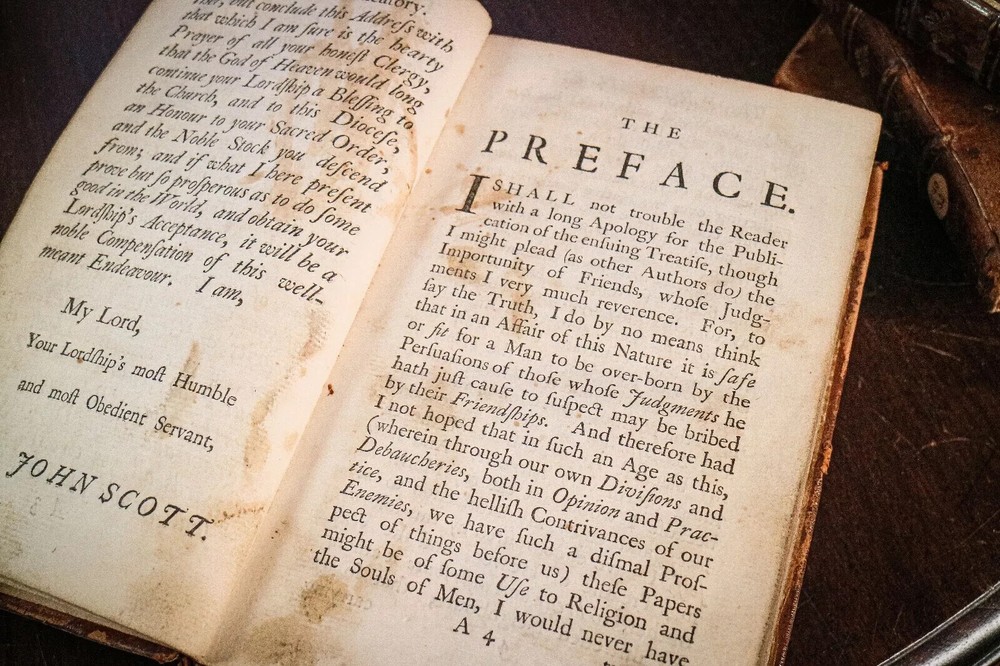 but conclude this Addreſs with
that which I am ſure is the hearty
Prayer of all your honeſt Clergy,
that the God of Heaven would long
continue your Lordſhip a Bleſſing to
the Church, and to this Dioceſe,
an Honour to your Sacred Order,
and the Noble Stock you deſcend
from; and if what I here preſent
prove but ſo proſperous as to do ſome
good in the World, and obtain your
Lordſhip's Acceptance, it will be a
noble Compenſation of this well-
meant Endeavour. I am,
My Lord,
Your Lordſhip's moſt Humble
and moſt Obedient Servant,
JOHN SCOTT.
THE
PREFACE.
I SHALL not trouble the Reader
with a long Apology for the Publi-
cation of the enſuing Treatiſe, though
I might plead (as other Authors do) the
Importunity of Friends, whoſe Judg-
ments I very much reverence. For, to
ſay the Truth, I do by no means think
that in an Affair of this Nature it is ſafe
or fit for a Man to be over-born by the
Perſuaſions of thoſe whoſe Judgments he
hath juſt cauſe to ſuſpect may be bribed
by their Friendſhips. And therefore had
I not hoped that in ſuch an Age as this,
(wherein through our own Diviſions and
Debaucheries, both in Opinion and Prac-
tice, and the helliſh Contrivances of our
Enemies, we have ſuch a diſmal Proſ-
pect of things before us) theſe Papers
might be of ſome Uſe to Religion and
the Souls of Men, I would never have
A 4